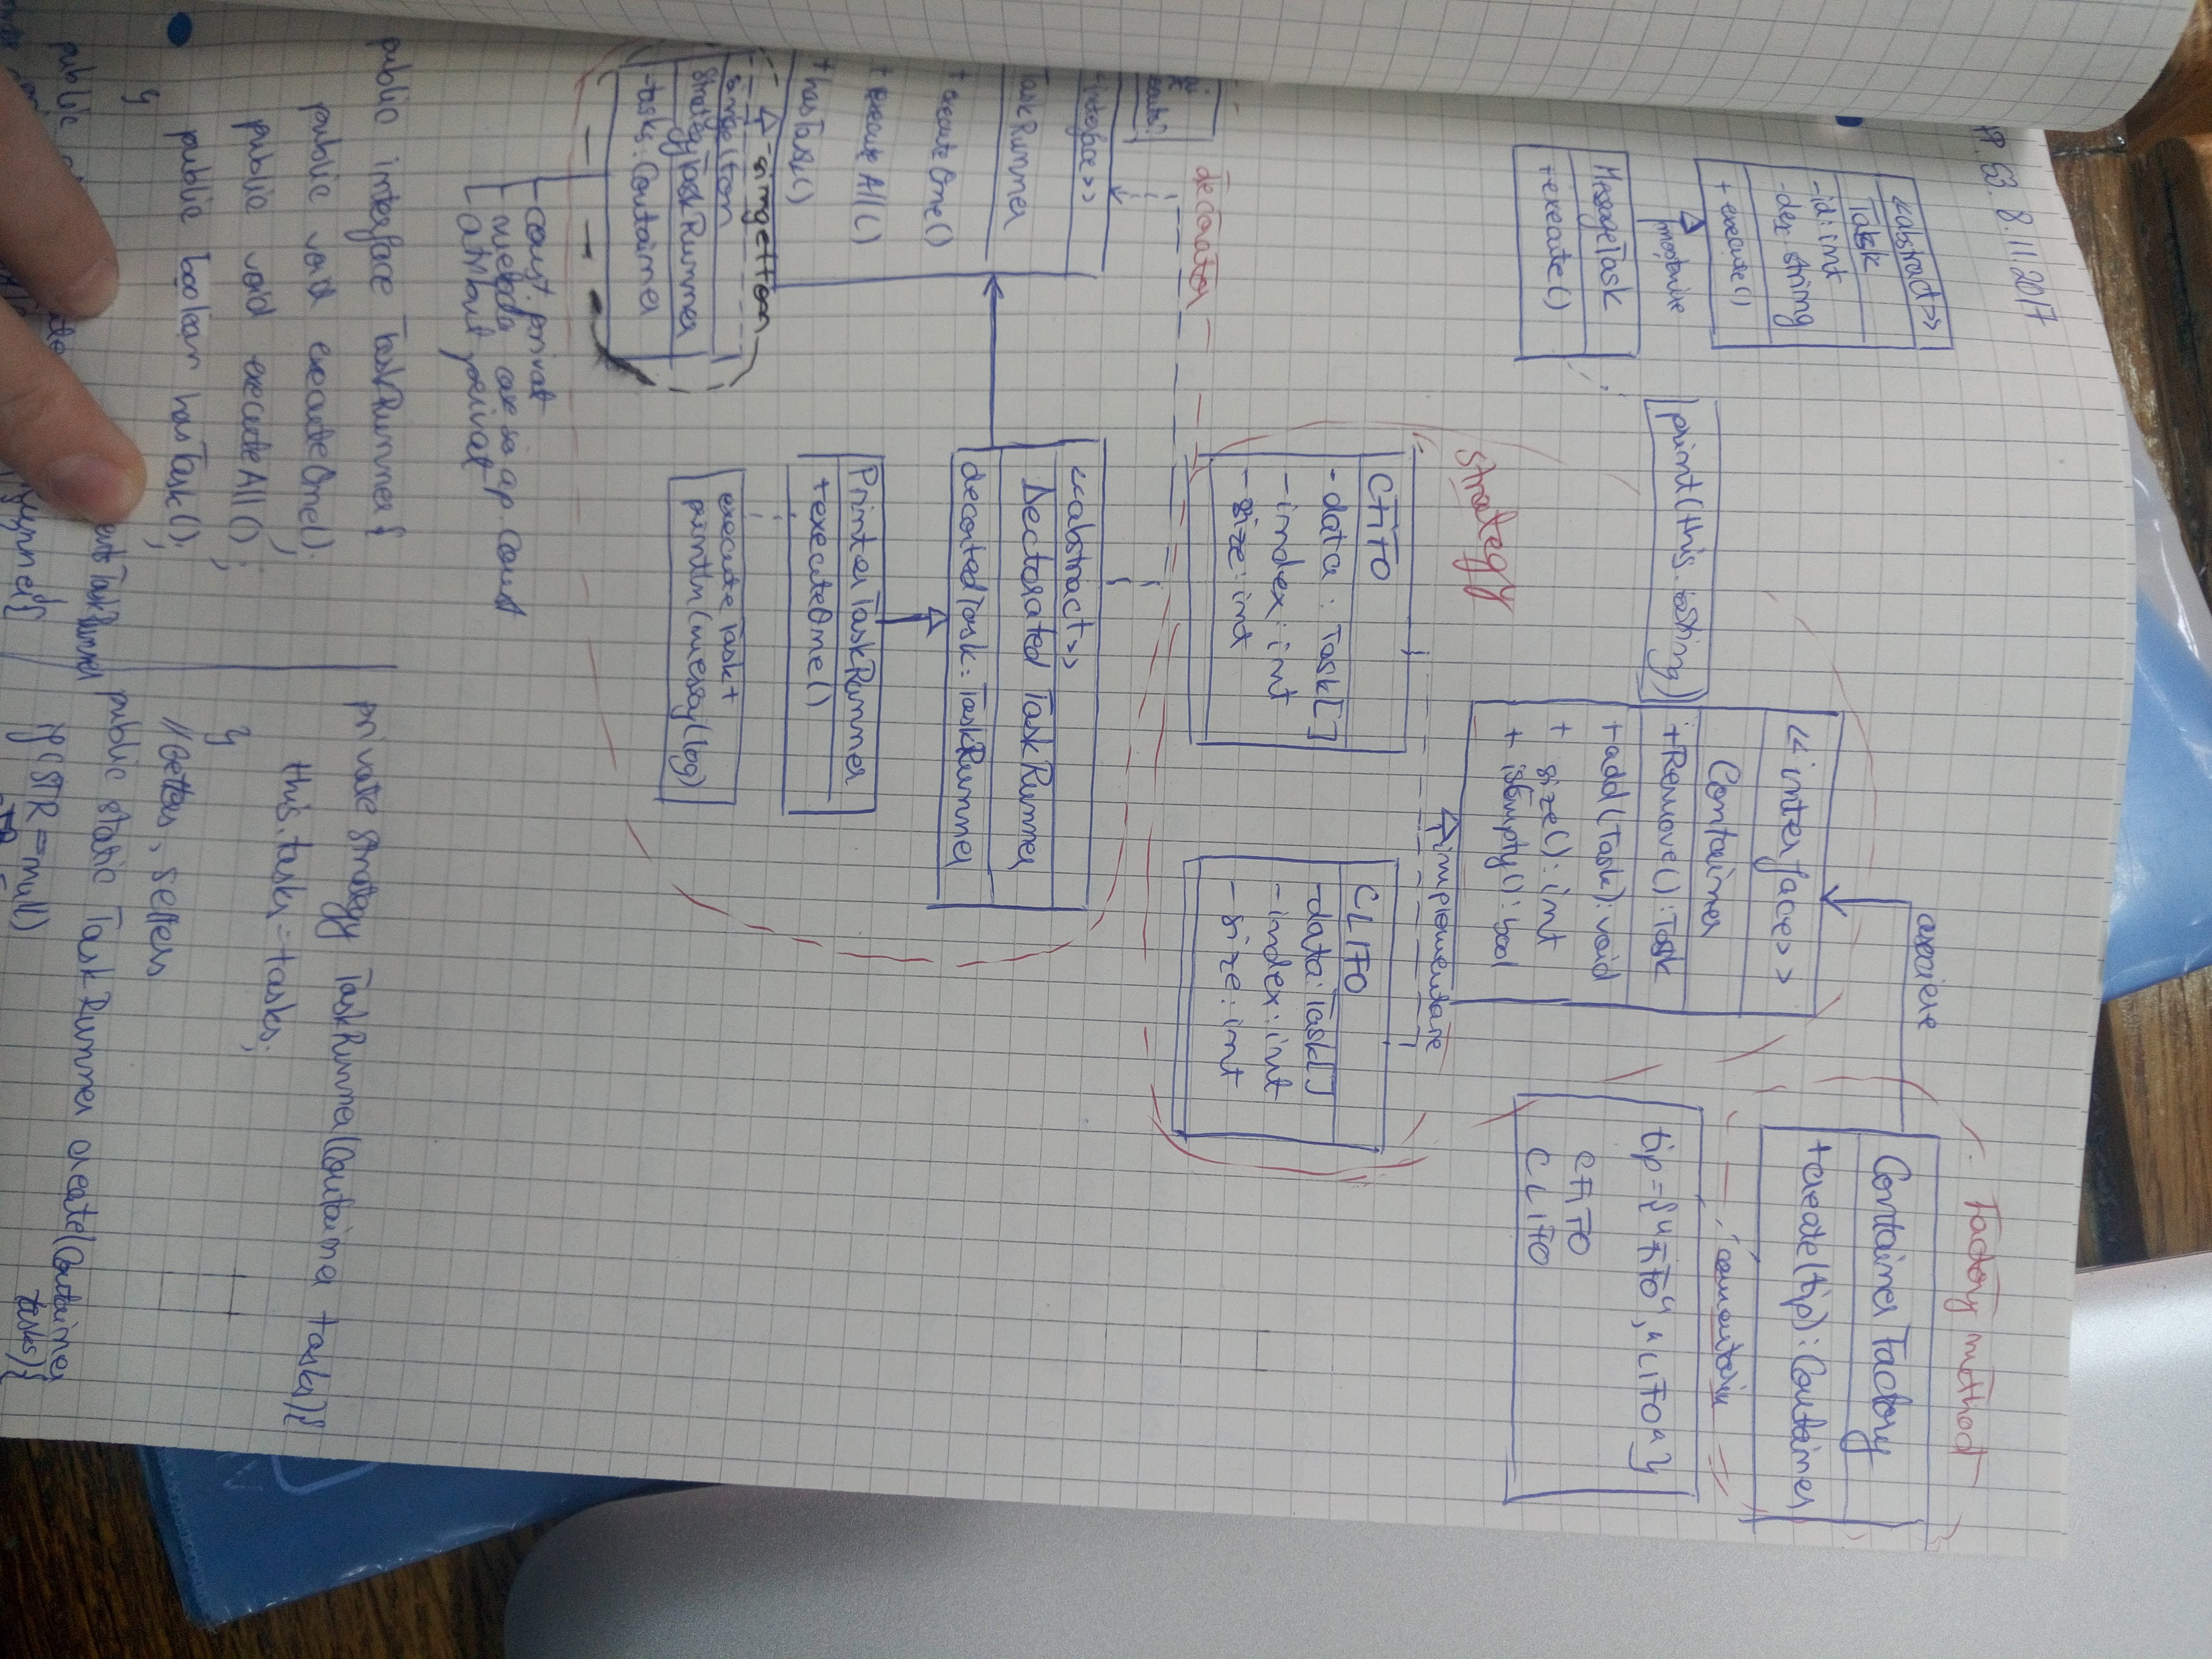 S3. 8.11.2017
<<abstract>>
Task
-id: int
-des string
+ execute()
moștenire
MessageTask
+execute()
print(this.toString)
asociere
Factory method
Container Factory
+create(tip): Container
comentariu
tip={"FIFO", "LIFO"}
CFIFO
CLIFO
<<interface>>
Container
+Remove(): Task
+add(Task): void
+ size(): int
+ isEmpty(): bool
strategy
implementare
CFIFO
-data : Task[]
-index: int
-size: int
CLIFO
-data: Task[]
-index: int
-size: int
decorator
interface>>
TaskRunner
+ executeOne()
+ execute All()
+hasTask()
<<abstract>>
Dectorated TaskRunner
decortedTask: TaskRunner
PrinterTaskRunner
+executeOne()
execute Task +
println(log)
singelton
singelton
StrategyTaskRunner
-tasks: Container
-const. privat
-metoda care ap. const
-atribut privat
public interface TaskRunner{
public void executeOne();
public void executeAll();
public boolean hasTask();
}
public
TaskRunner
private strategy TaskRunner(Container tasks){
this.tasks=tasks;
}
//Getters, setters
public static TaskRunner create(Container
tasks){
if(STR==null)